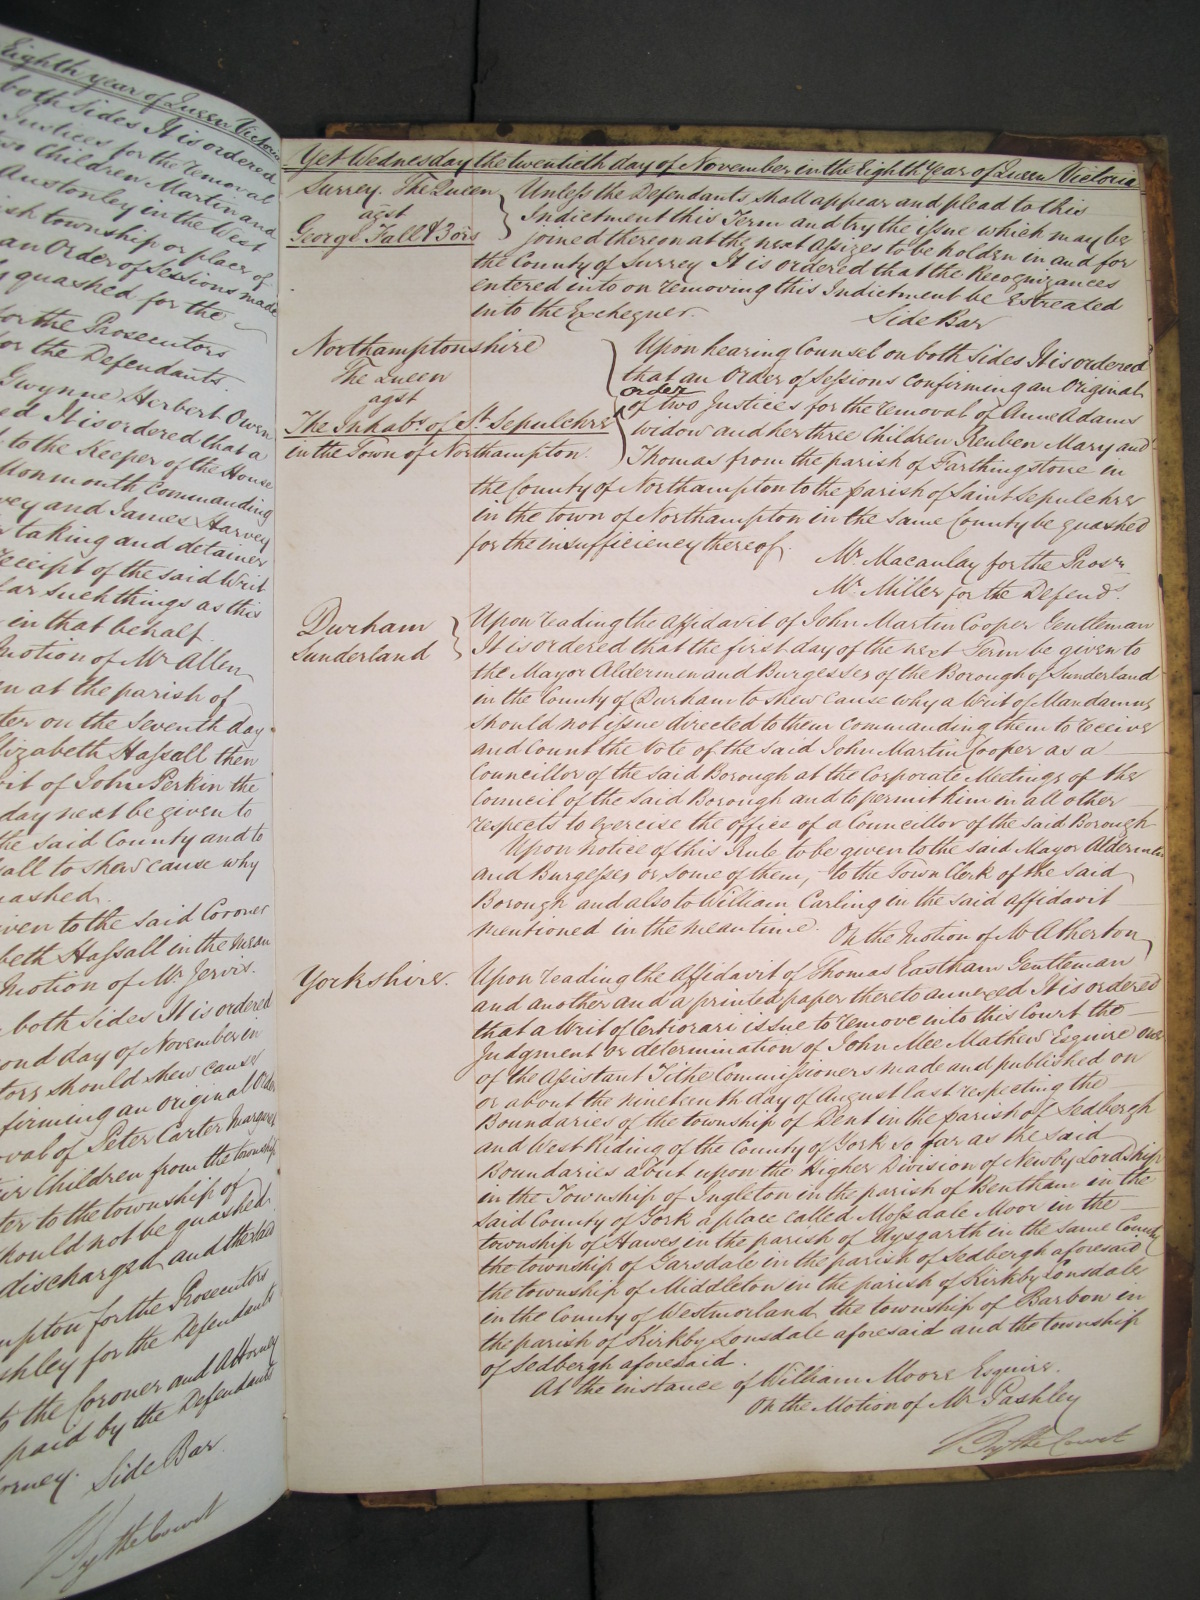 Eighth year of Queen Victoria
both Sides It is ordered
Justices for the Removal
two Children Martin and
Austonley in the West
township or place of
an Order of Sessions made
quashed for the
for the Prosecutors
for the Defendants.
Gwynne Herbert Owen
It is ordered that a
to the Keeper of the House
Monmouth Commanding
and James Harvey
taking and detainer
receipt of the said Writ
far such things as this
in that behalf.
Motion of Mr Allen
at the parish of
on the Seventh day
Elizabeth Hassall then
of John Perkin the
day next be given to
the said County and to
to shew cause why
quashed.
given to the said Coroner
Hassall in the mean
Motion of Mr Jervis.
both sides It is ordered
day of November in
should shew cause
an original Order
of Peter Carter Margaret
Children from the township
to the township of
should not be quashed
discharged and the
for the Prosecutors
for the Defendants
to the Coroner and Attorney
paid by the Defendants
Side Bar
By the Court
Yet Wednesday the twentieth day of November in the Eighth Year of Queen Victoria
Surrey. The Queen
agst
George Fall & 3 ors
Unless the Defendants shall appear and plead to this
Indictment this Term and try the issue which may be
joined thereon at the next Assizes to be holden in and for
the County of Surrey It is ordered that the Recognizances
entered into on removing this Indictment be Estreated
into the Exchequer.
Side Bar
Northamptonshire
The Queen
agst
The Inhabts. of St. Sepulchre
in the Town of Northampton.
Upon hearing Counsel on both sides It is ordered
that an Order of Sessions confirming an Original
order
of two Justices for the removal of Anne Adams
widow and her three Children Reuben Mary and
Thomas from the parish of Farthingstone in
the County of Northampton to the parish of Saint Sepulchre
in the town of Northampton in the same County be quashed
for the insufficiency thereof.
Mr. Macaulay for the Prosrs
Mr. Miller for the Defends.
Durham
Sunderland
Upon reading the affidavit of John Martin Cooper Gentleman
It is ordered that the first day of the next Term be given to
the Mayor Aldermen and Burgesses of the Borough of Sunderland
in the County of Durham to shew cause why a Writ of Mandamus
should not issue directed to them commanding them to receive
and Count the Vote of the said John Martin Cooper as a
Councillor of the said Borough at the Corporate Meetings of the
Council of the said Borough and to permit him in all other
respects to exercise the office of a Councillor of the said Borough
Upon notice of this Rule to be given to the said Mayor Aldermen
and Burgesses or some of them, to the Town Clerk of the said
Borough and also to William Carling in the said affidavit
mentioned in the mean time.
On the motion of Mr Atherton
Yorkshire.
Upon reading the Affidavit of Thomas Eastham Gentleman
and another and a printed paper thereto annexed It is ordered
that a Writ of Certiorari issue to remove into this Court the
Judgment or determination of John Mee Mathew Esquire one
of the Assistant Tithe Commissioners made and published on
or about the nineteenth day of August last respecting the
Boundaries of the township of Dent in the parish of Sedbergh
and West Riding of the County of York so far as the said
Boundaries abut upon the Higher Division of Newby Lordship
in the Township of Ingleton in the parish of Bentham in the
said County of York a place called Mossdale Moor in the
township of Hawes in the parish of Aysgarth in the same County
the township of Garsdale in the parish of Sedbergh aforesaid
the township of Middleton in the parish of Kirkby Lonsdale
in the County of Westmorland the township of Barbon in
the parish of Kirkby Lonsdale aforesaid and the township
of Sedbergh aforesaid.
At the instance of William Moore Esquire.
On the Motion of Mr Pashley
By the Court